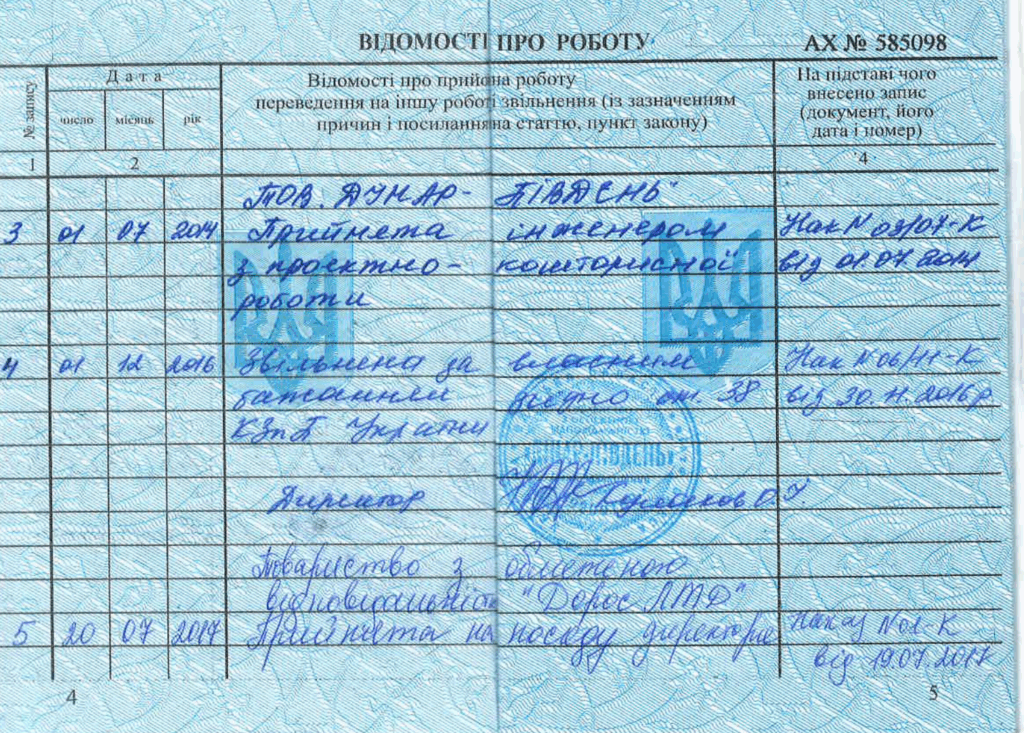 ВІДОМОСТІ ПРО РОБОТУ АХ № 585098
№ запису
Дата
число місяць рік
Відомості про прийом на роботу
переведення на іншу роботі звільнення (із зазначенням
причин і посилання на статтю, пункт закону)
На підставі чого
внесено запис
(документ, його
дата і номер)
1 2 4
ТОВ. ДУНАР-ПІВДЕНЬ"
3 01 07 2014 Прийнята інженером Нак N 03/07-К
з проектно-кошторисної від 01.07.2014
роботи
4 01 12 2016 Звільнена за власним Нак N 06/11-К
бажанням згідно ст. 38 від 30.11.2016р
КЗпП України
Директор
Товариство з обмеженою
відповідальністю "Дорос ЛТД"
5 20 07 2017 Прийнята на посаду директора Наказ N01-К
від 19.07.2017
4 5